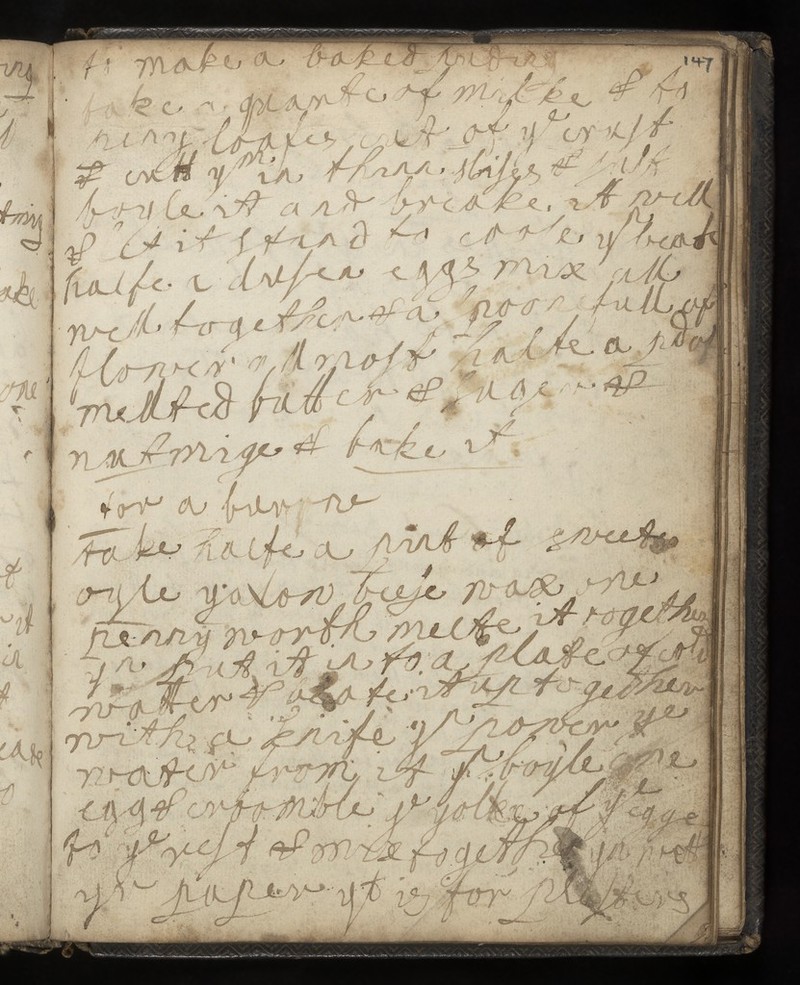 147
to make a baked puding
take a quarte of milke & to
peny loafes cut of ye crust
& cutt ym in thinn slises & just
boyle itt and breake itt well
& let it stand to coole yn beate
halfe a dussen eggs mix all
well together & a spoonefull of
flower allmost halfe a pd of
mellted butter & suger &
nutmige & bake it
for a burne
take halfe a pint of sweete
oyle yalow beese wax one
penny worth melte it together
yn put it in to a plate of cold
watter & beate it up together
with a knife yn power ye
water from it yn boyle one
egg & croomble ye yolke of ye egge
to ye rest & mix together yn wett
yr paper yt is for plasters